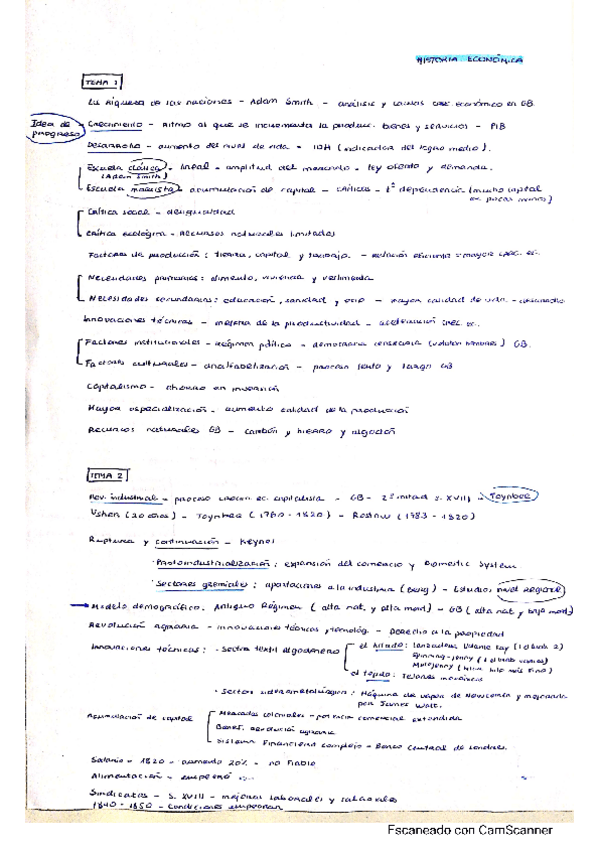 HISTORIA ECONÓMICA
TEMA 1
La riqueza de las naciones - Adam Smith - análisis y causas crec. económico en GB.
Idea de progreso
Crecimiento - Ritmo al que se incrementa la produc. bienes y servicios - PIB
Desarrollo - aumento del nivel de vida - IDH (indicador del logro medio).
Escuela clásica - lineal - amplitud del mercado - ley oferta y demanda.
(Adam Smith)
Escuela marxista - acumulación de capital - críticas - tª dependencia (mucho capital
en pocas manos)
Crítica social - desigualdad
Crítica ecológica - recursos naturales limitados
Factores de producción: tierra, capital y trabajo - relación eficiente = mayor crec. ec.
Necesidades primarias: alimento, vivienda y vestimenta
Necesidades secundarias: educación, sanidad y ocio - mayor calidad de vida - desarrollo
Innovaciones técnicas - mejora de la productividad - aceleración crec. ec.
Factores institucionales - régimen político - democracia censitaria (votaban hombres) GB.
Factores culturales - analfabetización - proceso lento y largo GB
Capitalismo - ahorro en inversión
Mayor especialización - aumento calidad de la producción
Recursos naturales GB - carbón y hierro y algodón
TEMA 2
Rev. industrial - proceso crecim. ec. capitalista - GB - 2ª mitad s. XVIII - Toynbee
(20 años) - Toynbee (1760 - 1820) - Rostow (1783 - 1820)
Ruptura y continuación - Keynes
· Protoindustrialización: expansión del comercio y Domestic System
· Sectores gremiales: aportaciones a la industria (Berg) - Estudios nivel regional
Modelo demográfico. Antiguo Régimen (alta nat. y alta mort) - GB (alta nat. y baja mort)
Revolución agraria - innovaciones técnicas, tecnológ. - Derecho a la propiedad
Innovaciones técnicas: · Sector textil algodonero
el hilado: lanzadera volante Kay
Spinning-jenny
Mule jenny
el tejido: Telares mecánicos
· Sector siderometalúrgico: Máquina de vapor de Newcomen y mejorada
por James Watt.
Acumulación de capital
Mercados coloniales - potencia comercial extendida
Benef. revolución agraria
Sistema financiero complejo - Banco Central de Londres.
Salario - 1820 - aumento 20% - no fiable
Alimentación - empeoró
Sindicatos - S. XVIII - mejoras laborales y salariales
1840 - 1850 - Condiciones empeoran
Escaneado con CamScanner